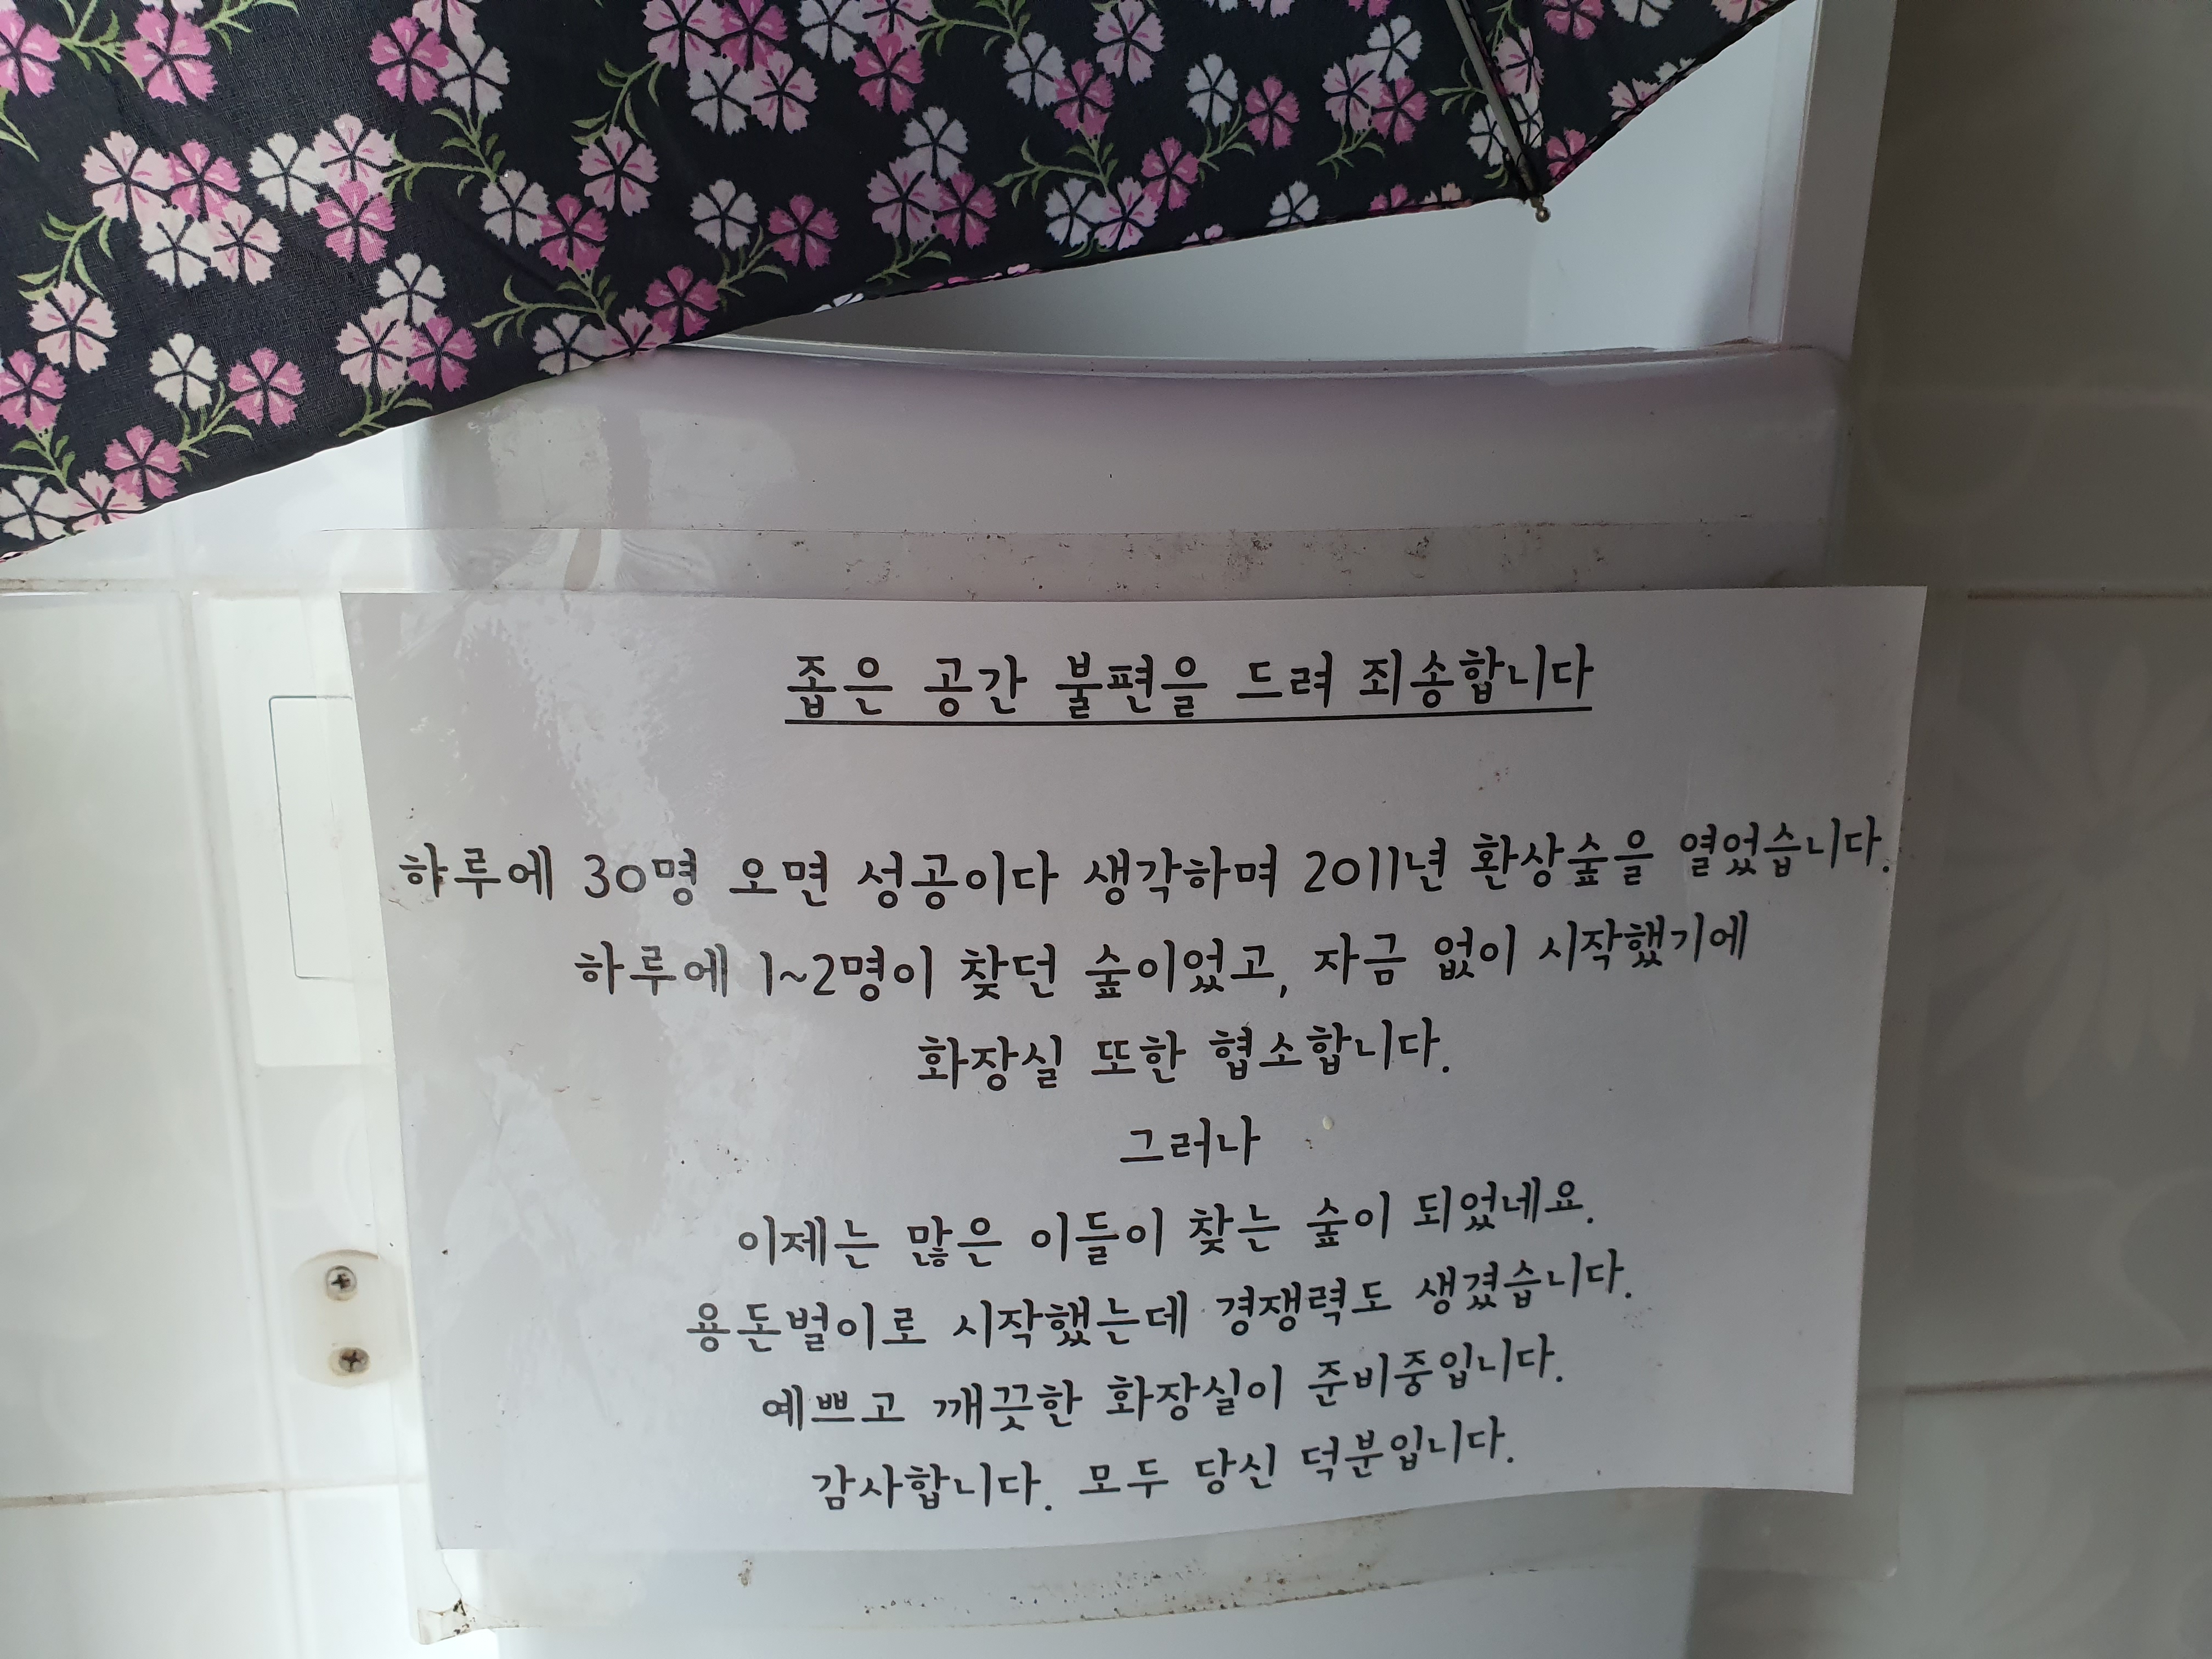 좁은 공간 불편을 드려 죄송합니다
하루에 30명 오면 성공이다 생각하며 2011년 환상숲을 열었습니다.
하루에 1~2명이 찾던 숲이었고, 자금 없이 시작했기에
화장실 또한 협소합니다.
그러나
이제는 많은 이들이 찾는 숲이 되었네요.
용돈벌이로 시작했는데 경쟁력도 생겼습니다.
예쁘고 깨끗한 화장실이 준비중입니다.
감사합니다. 모두 당신 덕분입니다.